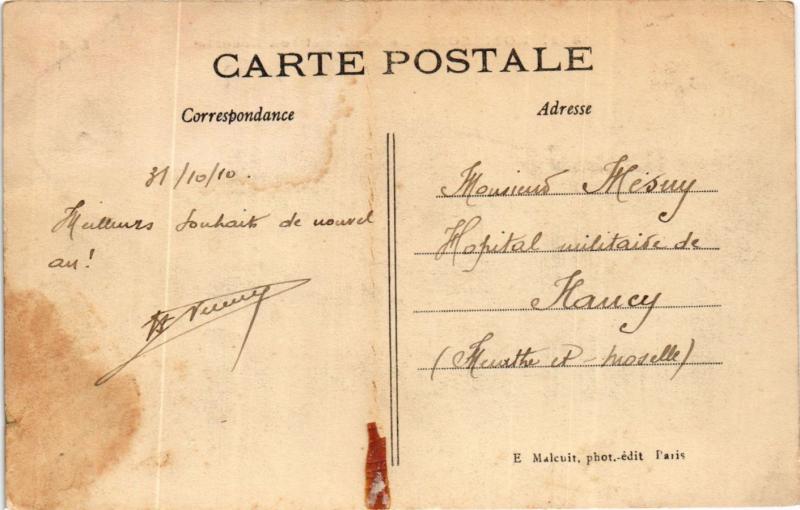 CARTE POSTALE
Correspondance
Adresse
31/10/10.
Meilleurs souhaits de nouvel
an!
Monsieur Mésny
Hopital militaire de
Nancy
(Meurthe et-Moselle)
E Malcuit, phot.-édit Paris